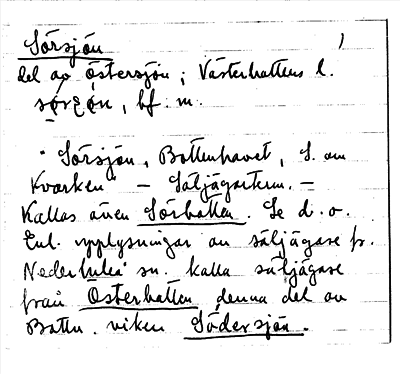 Sörsjön 1
del av Östersjön; Västerbottens l.
bf. m.
"Sörsjön, Bottenhavet, S. om
Kvarken" – Säljägarterm. –
Kallas även Sörbotten. Se d. o.
Enl. upplysningar av säljägare fr.
Nederluleå sn. kalla säljägare
från Österbotten denna del av
Bottn. viken Södersjön.